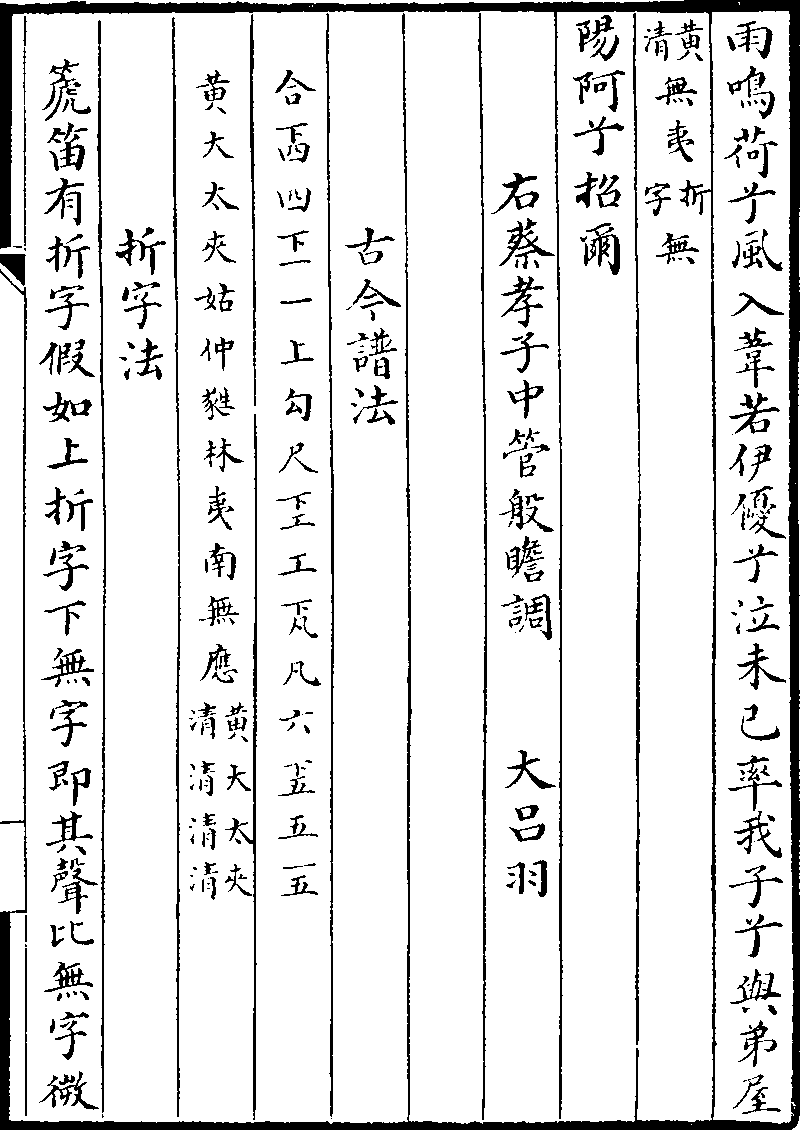 雨鳴荷兮風入葦若伊優兮泣未已率我子兮與弟屋
黃清無夷折字無
陽阿兮招爾
右蔡孝子中管般瞻調　大呂羽
古今譜法
合下四四下一一上勾尺下工工下凡凡六下五五一五
黃大太夾姑仲蕤林夷南無應黃清大清太清夾清
折字法
箎笛有折字假如上折字下無字即其聲比無字微